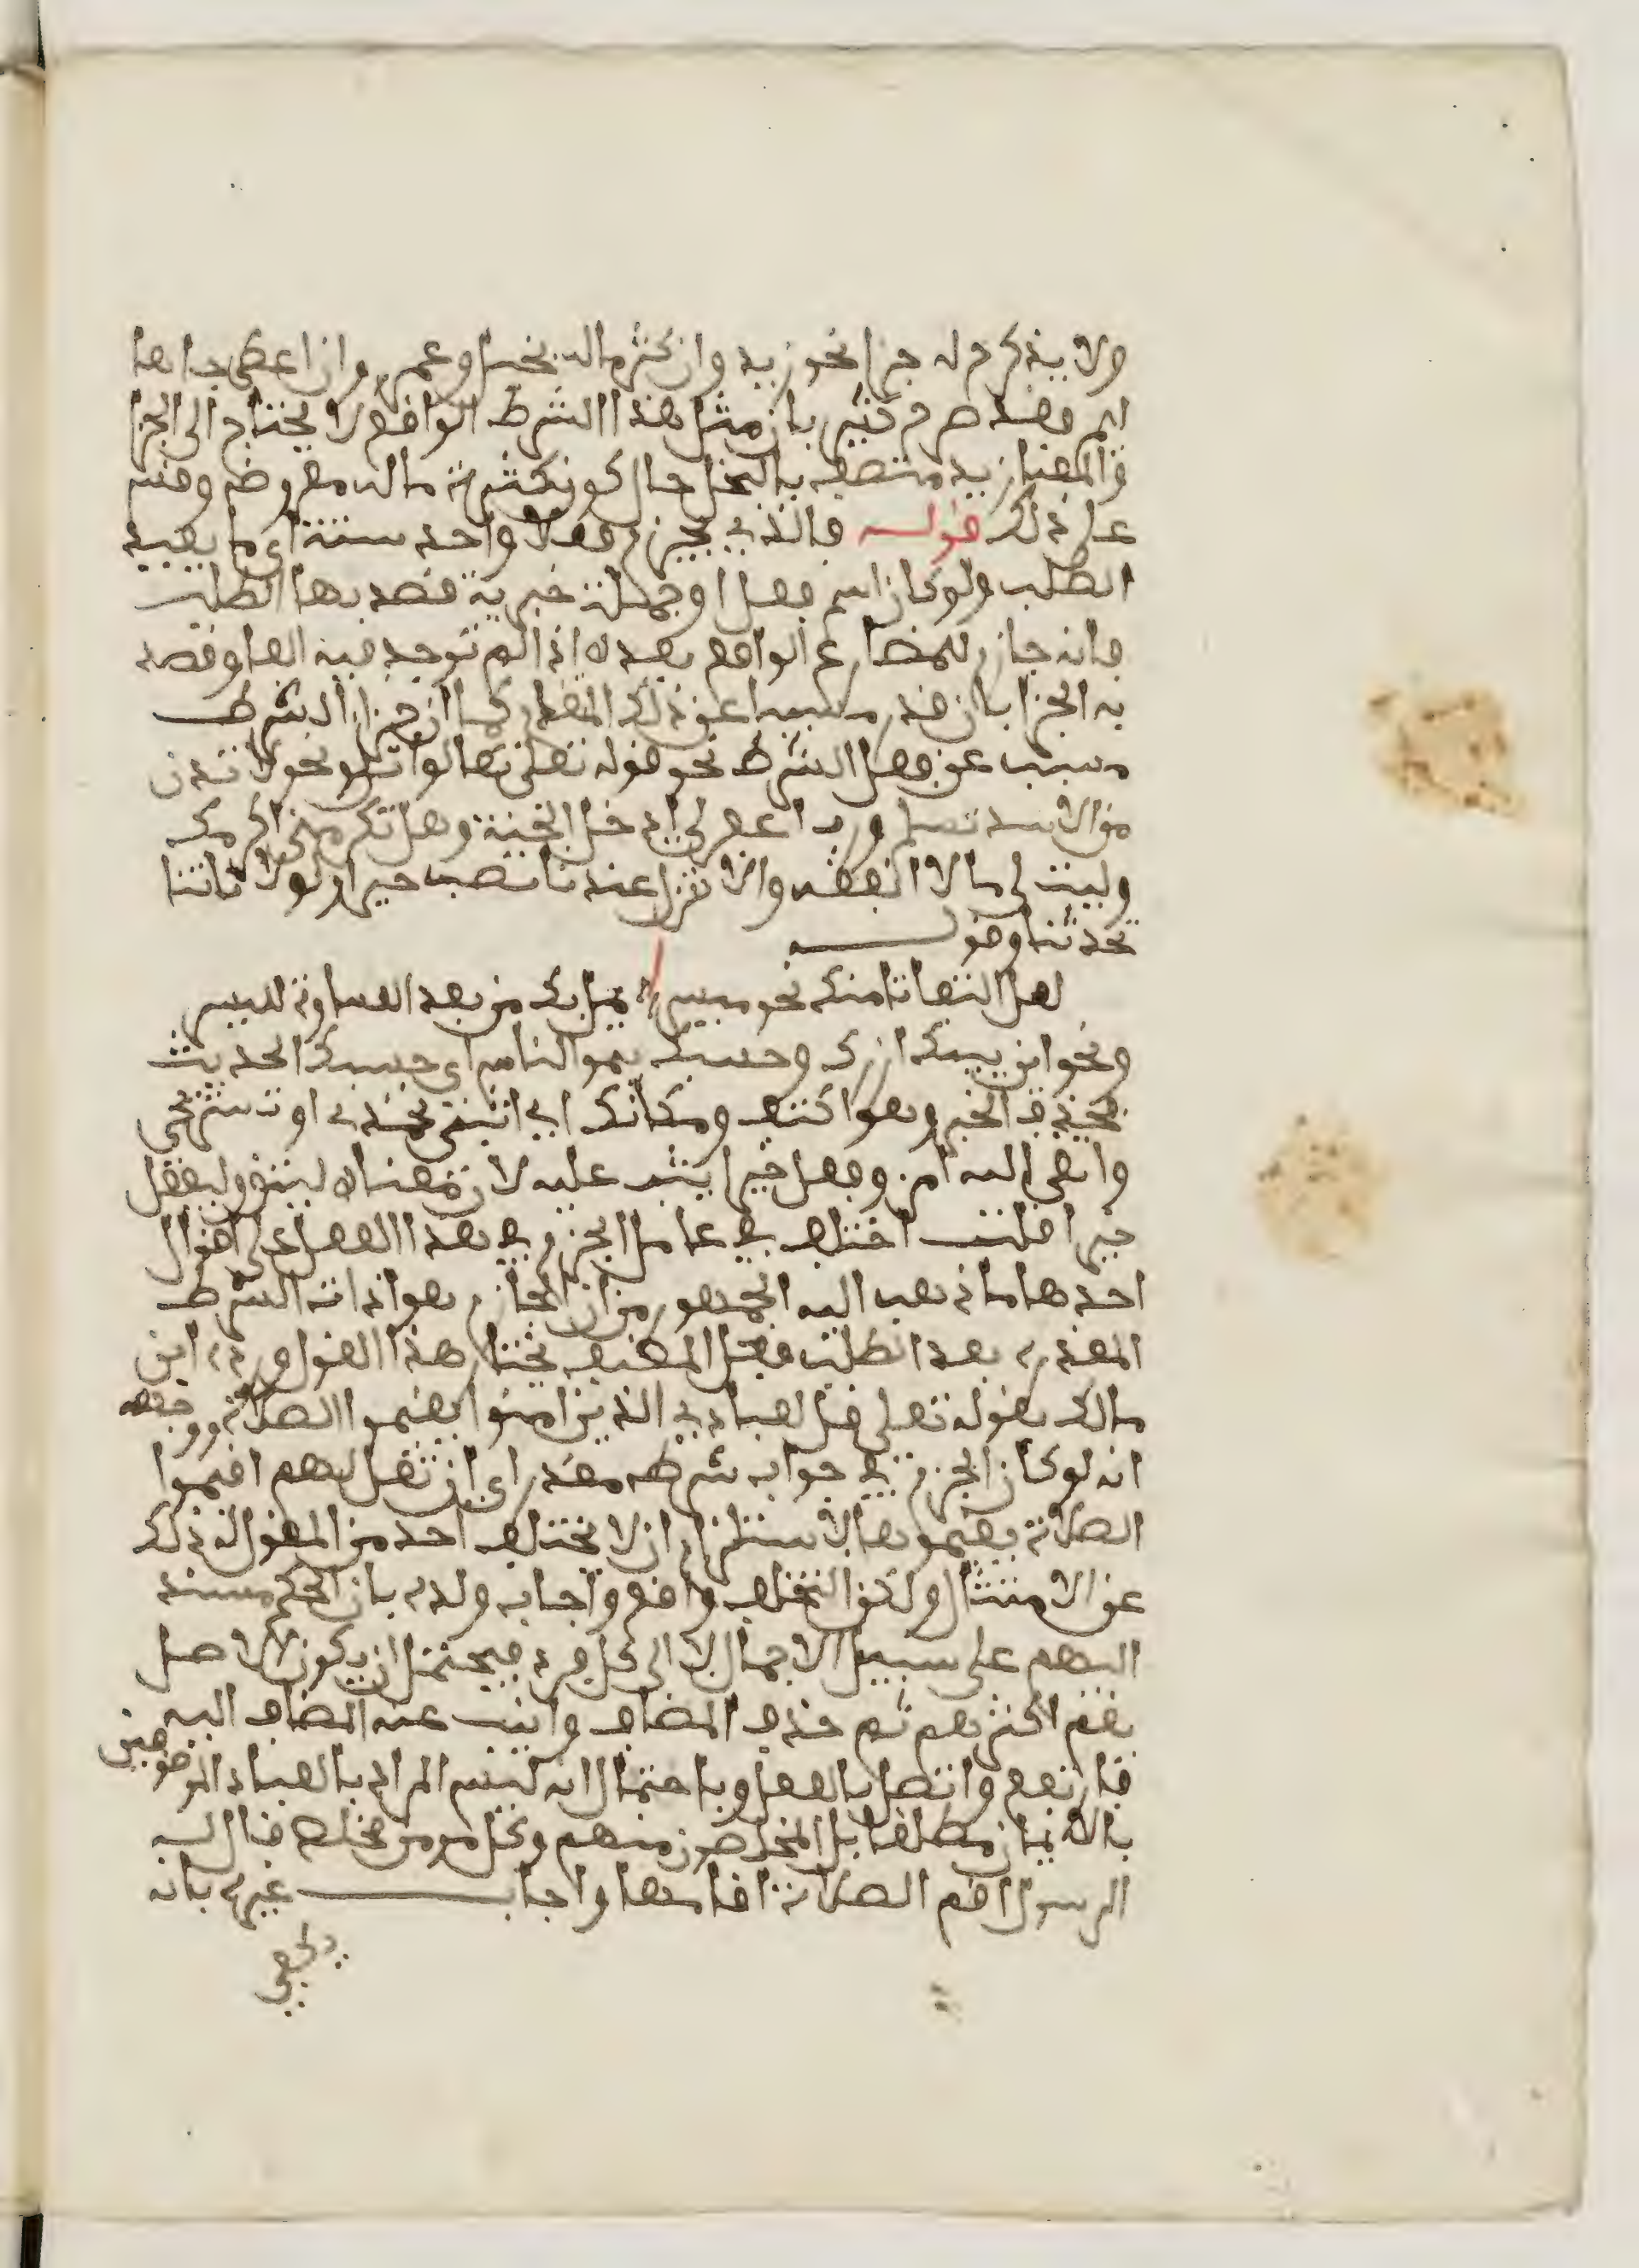 ولا يذكر له جزا نحو زيد وان كثر ماله بخيل وعمرو وان اعطى جاها
ليم وقد صرح كثير بان مثل هذا الشرط الواقع لا يحتاج الى الجزا
والمعنى زيد متصف بالبخل حال كون كثرة ماله مفروض وقس
على ذلك قوله فالذي يجزم فعلا واحد ستة اي ما يفيد
الطلب ولو كان اسم فعل او جملة خبرية قصد بها الطلب
فانه جازم للمضارع الواقع بعده اذا لم توجد فيه الفا وقصد
به الجزا بان قدر مسببا عن ذلك المقدر كما ان جزا الشرط
مسبب عن فعل الشرط نحو قوله تعلى تعالوا اتل ونحو لا تدن
من الاسد تسلم ورب اغفر لي ادخل الجنة وهل تكرمني اكرمك
وليت لي مالا انفقه والا تنزل عندنا تصب خيرا ولولا تاتنا
تحدثنا وقولــه
لعل التفاتا منك نحو ميسر يمل بك من بعد القساوة لليسر
ونحو اين بيتك ازرك وحسبك ينم الناس اي حسبك الحديث
فحذف الخبر وهو اكتف ومكانك اي اثبتي تحمدي او تستريحي
واتقى الله امرء وفعل خيرا يثب عليه لان معناه ليتق وليفعل
خيرا قلت اختلف في عامل الجزم في هذا الفعل على اقوال
احدها ما ذهب اليه الجمهور من ان الجازم هو اداة الشرط
المقدرة بعد الطلب فقبل المصنف يختار هذا القول ورده ابن
مالك بقوله تعلى قل لعبادي الذين امنوا يقيموا الصلاة ووجهه
انه لو كان الجزم في جواب شرط مقدر اي ان تقل لهم اقيموا
الصلاة يقيموها لاستلزم ان لا يختلف احد من المقول له ذلك
عن الامتثال ولكن التخلف واقع واجاب ولده بان الحكم مسند
اليهم على سبيل الاجمال لا الى كل فرد فيحتمل ان يكون الاصل
يقم اكثرهم ثم حذف المضاف وانيب عنه المضاف اليه
فارتفع واتصل بالفعل وباحتمال انه ليس المراد بالعباد الموصوفين
بالايمان مطلقا بل المخلصون منهم وكل مومن مخلص قال له
الرسول اقم الصلاة اقامها واجاب غيره بانه
يكفي